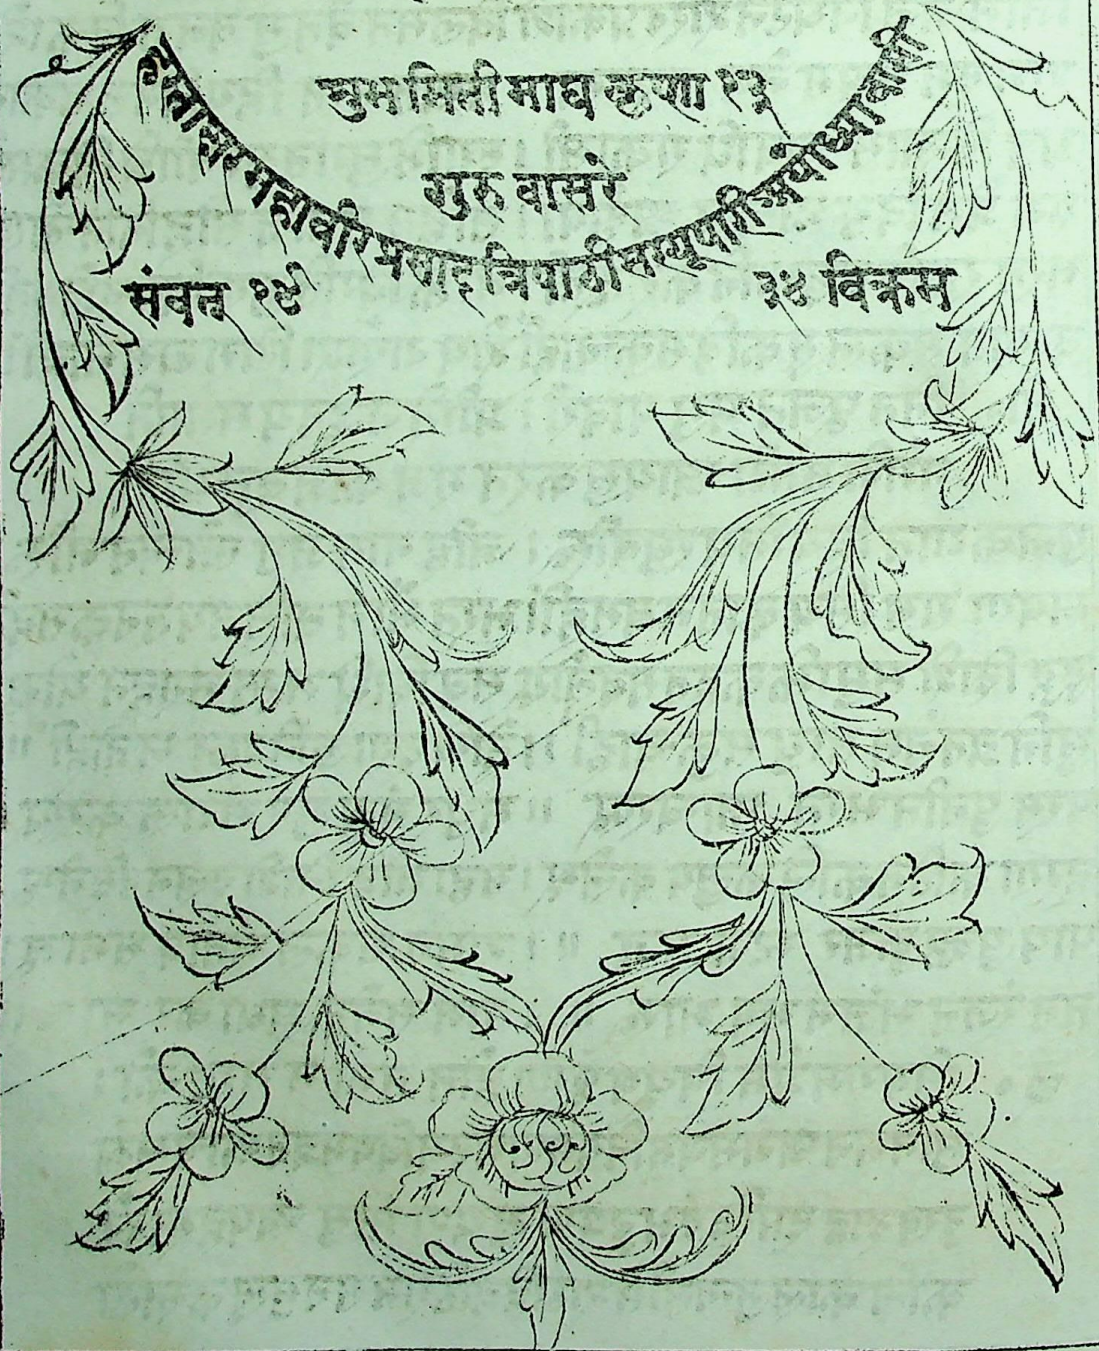 शुभ मिती माघ कृष्णा १३
गुरु वासरे
हस्ताक्षर महावीर प्रसाद त्रिपाठी सरयूपारी अयोध्या वासी
संवत १९ ३४ विक्रम